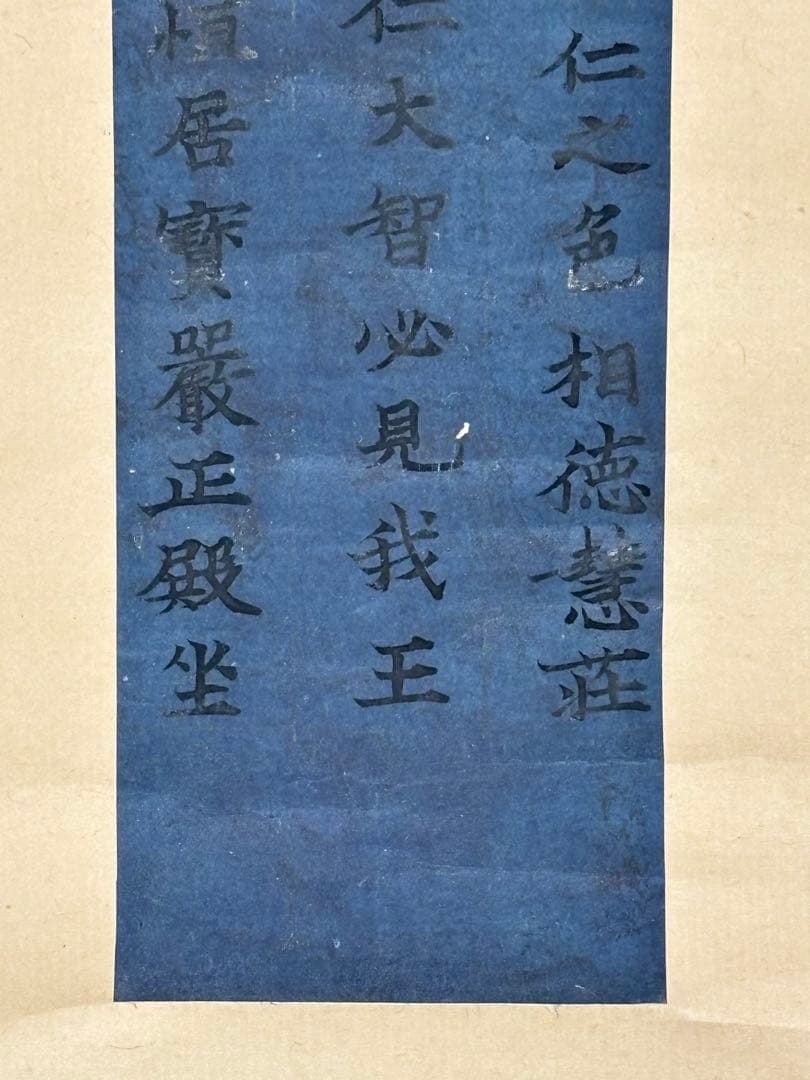 仁之色相德慧莊
仁大智必見我王
恒居寶嚴正殿坐